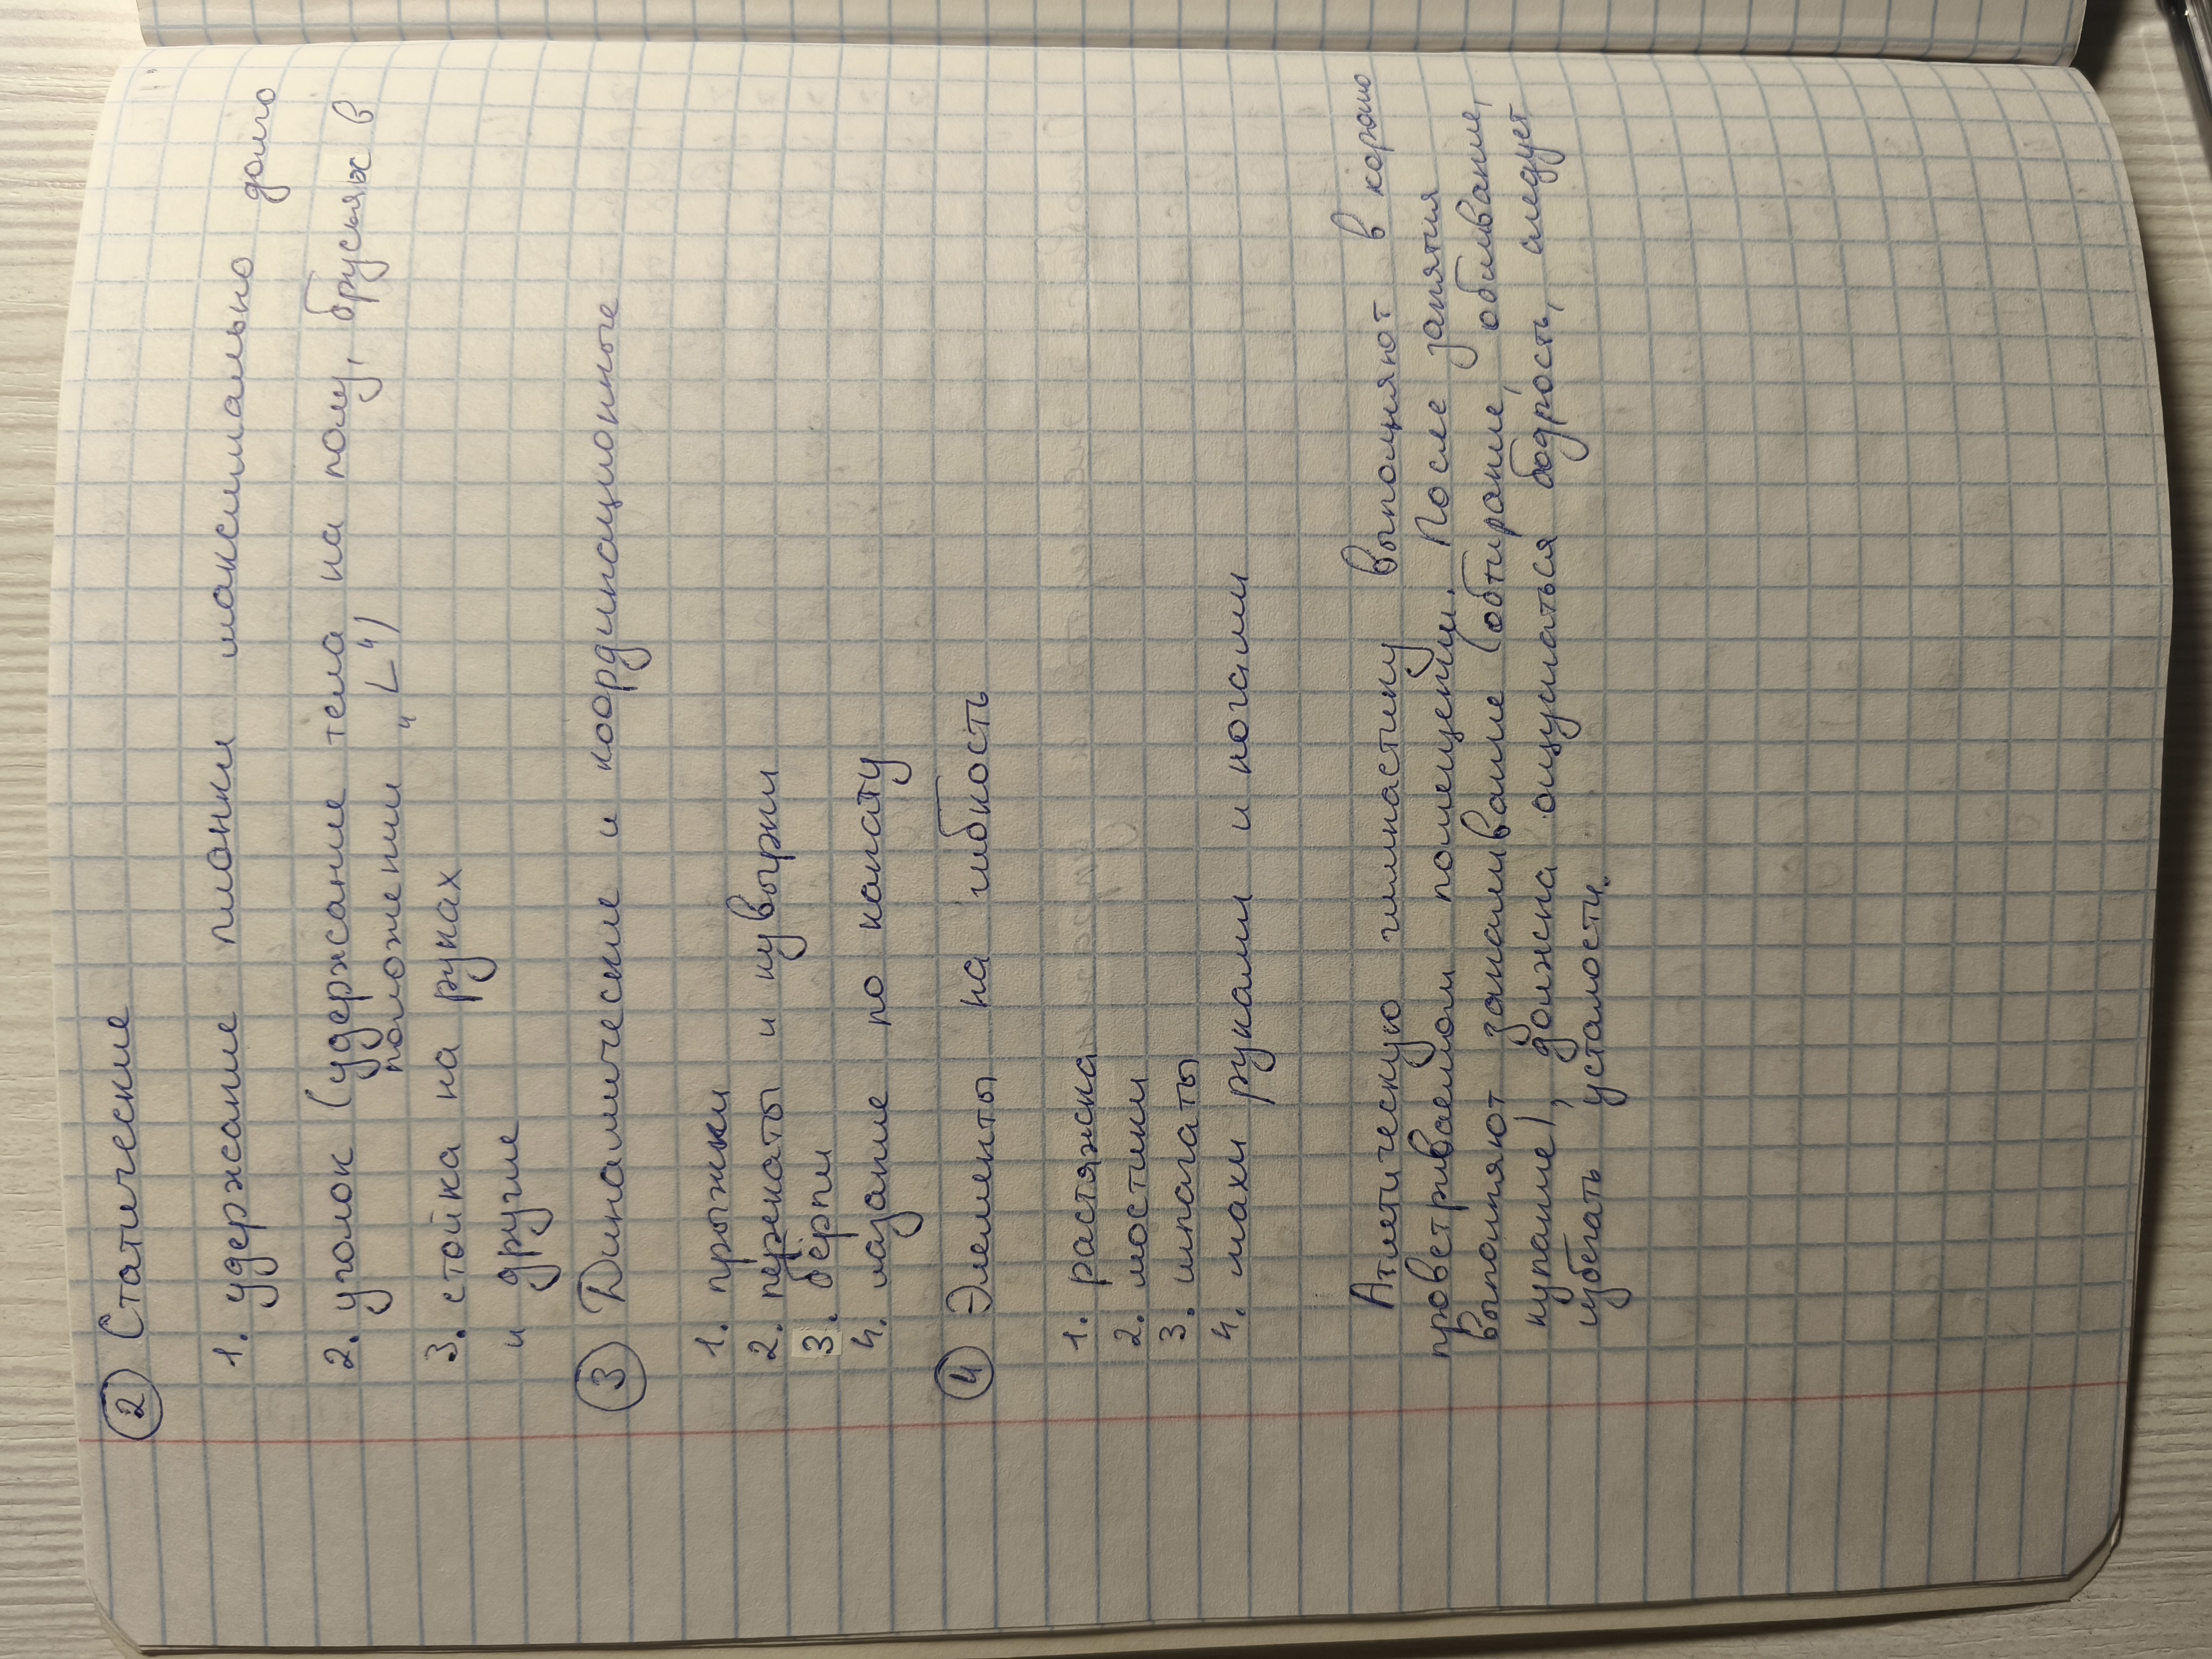 ② Статические
1. удержание планки максимально долго
2. уголок (удержание тела на полу, брусьях в
положении "L")
3. стойка на руках
и другие
③ Динамические и координационные
1. прыжки
2. перекаты и кувырки
3. бёрпи
4. лазание по канату
④ Элементы на гибкость
1. растяжка
2. мостики
3. шпагаты
4. махи руками и ногами
Атлетическую гимнастику выполняют в хорошо
проветриваемом помещении. После занятия
выполняют закаливание (обтирание, обливание,
купание), должна ощущаться бодрость, следует
избегать усталости.